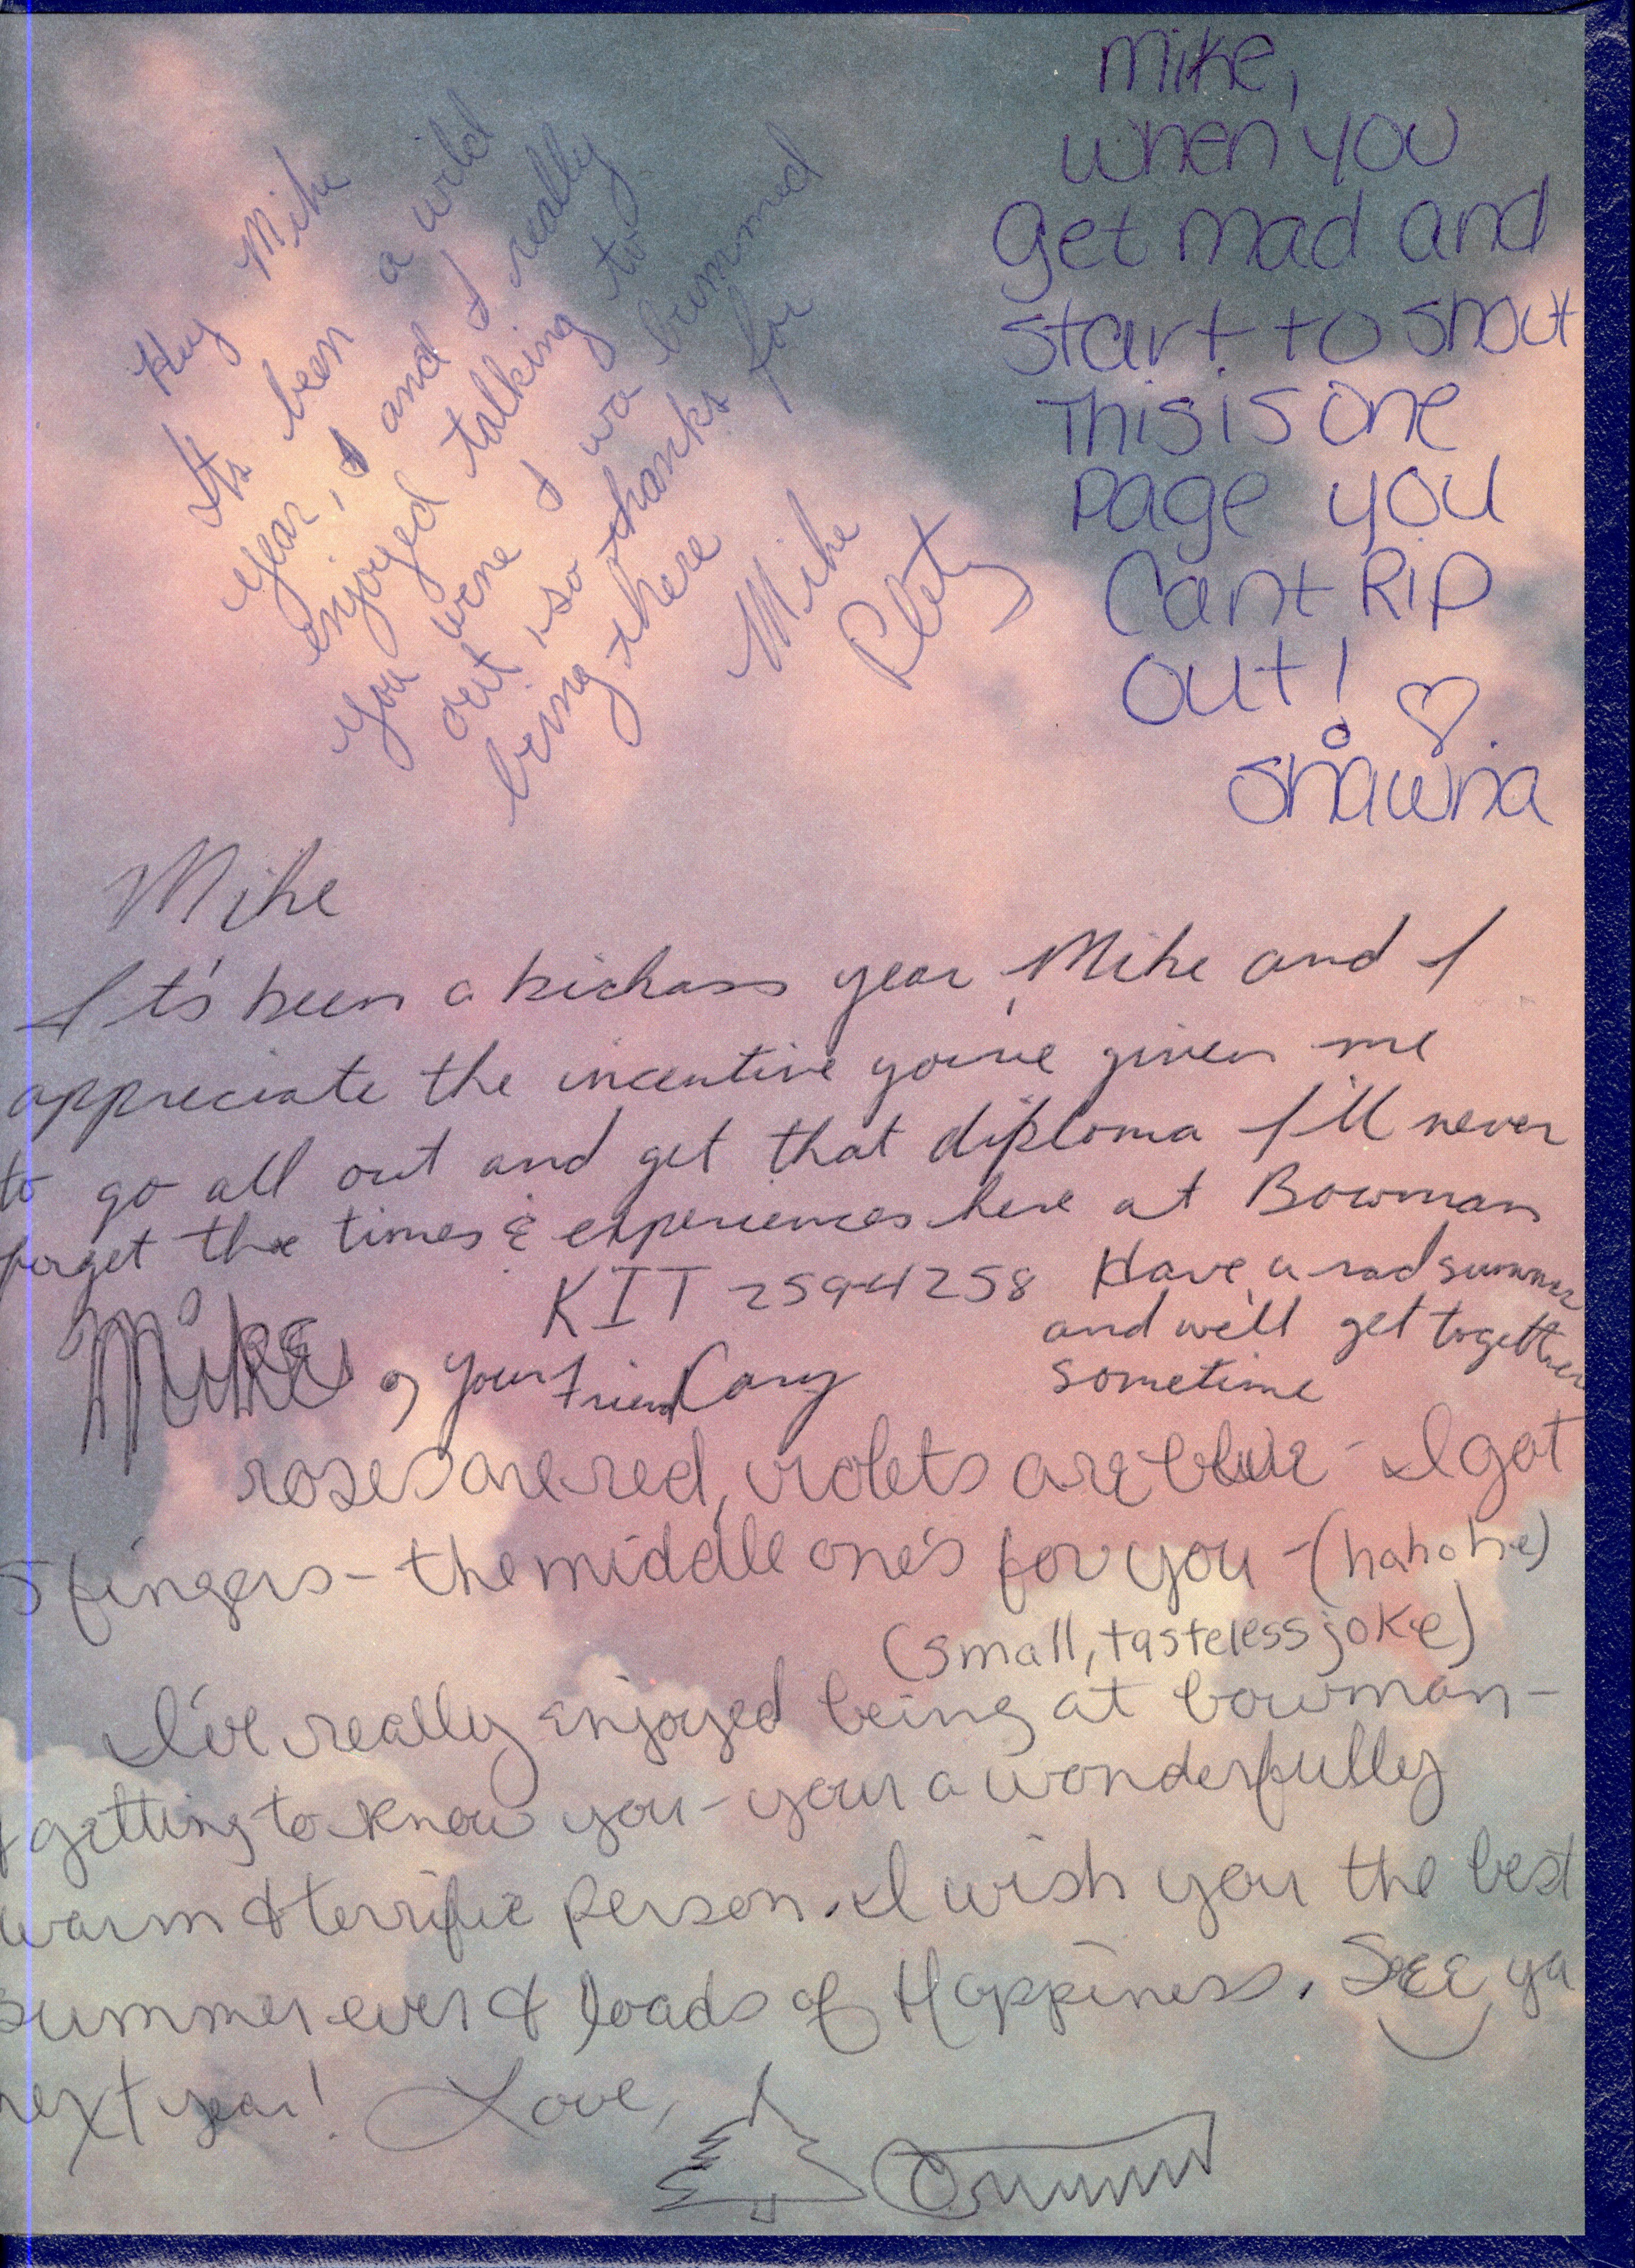 Hey Mike
Its been a wild
year, I and I really
enjoyed talking to
you wene I wa bummed
out, so thanks for
being there
Mike
Mike,
when you
get mad and
start to shout
This is one
page you
Cant Rip
out!
Shawna
Mike
It's been a kickass year, Mike and I
appreciate the incentive youve given me
to go all out and get that diploma I'll never
forget the times & experiences here at Bowman
KIT 2594258 Have a rad summer
and we'll get together
sometime
Mike, your friend Cary
roses are red, violets are blue - I got
5 fingers - the middle one's for you - (hahahe)
(small, tasteless joke)
I've really enjoyed being at bowman -
& getting to know you - your a wonderfully
warm & terrific person. I wish you the best
summer ever & loads of Happiness. See ya
next year! Love,